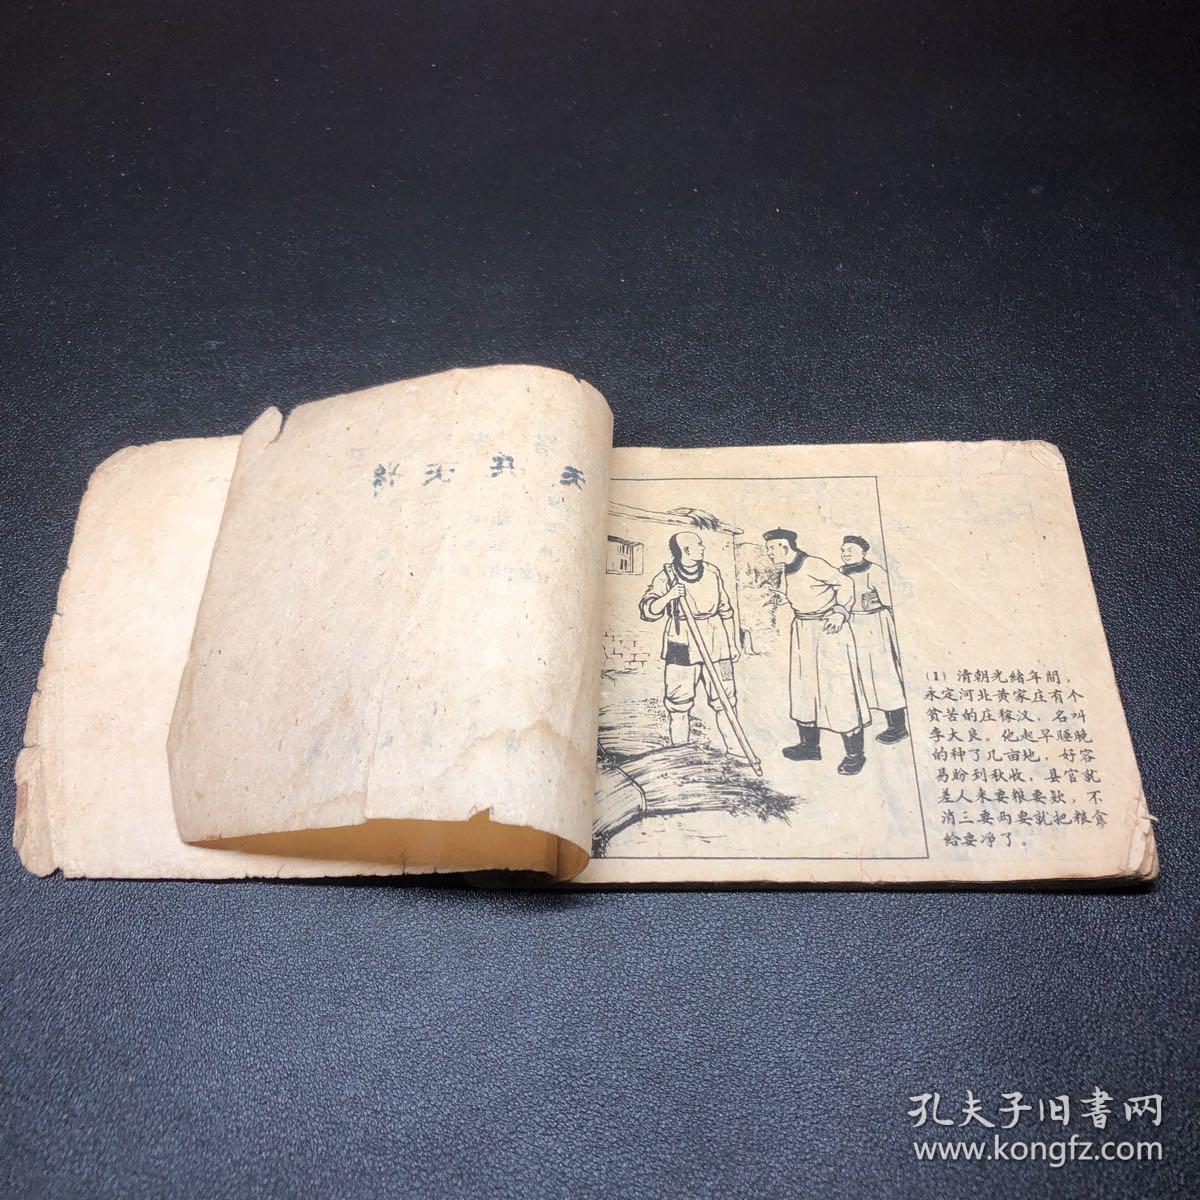 天兵天将
(1) 清朝光绪年間，
永定河北黄家庄有个
贫苦的庄稼汉，名叫
李大良。他起早睡晚
的种了几亩地，好容
易盼到秋收，县官就
差人来要粮要款，不
消三要两要就把粮食
给要净了。
孔夫子旧書网
www.kongfz.com